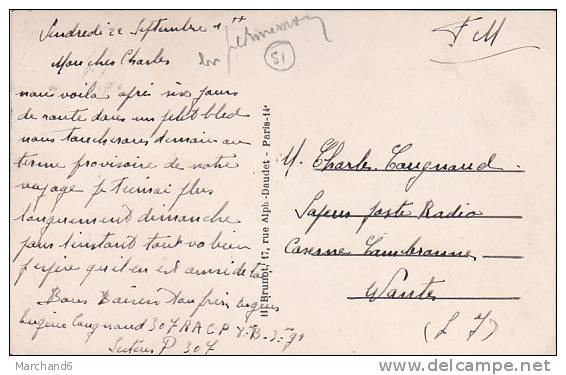 Vendredi 22 Septembre
Mon cher Charles
nous voila après six jours
de route dans un petit bled
nous toucherons demain au
terme provisoire de notre
voyage je t'écrirai plus
longuement dimanche
pour l'instant tout va bien
j'espère qu'il en est ainsi de toi
Bons Baisers ton frère Eugène
Eugène Caugnaud 307 R A C P
Secteur P 307
51
F M
H. Brunot, 17, rue Alph.-Daudet - Paris-14e
M. Charles Caugnaud
Sapeur poste Radio
Caserne Cambronne
Nantes
(L I)
Marchand6
www.delcampe.net